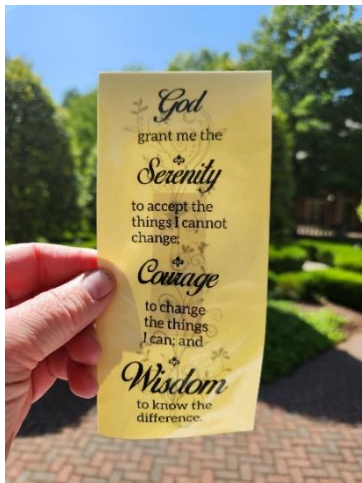 God
grant me the
Serenity
to accept the
things I cannot
change;
Courage
to change
the things
I can; and
Wisdom
to know the
difference.